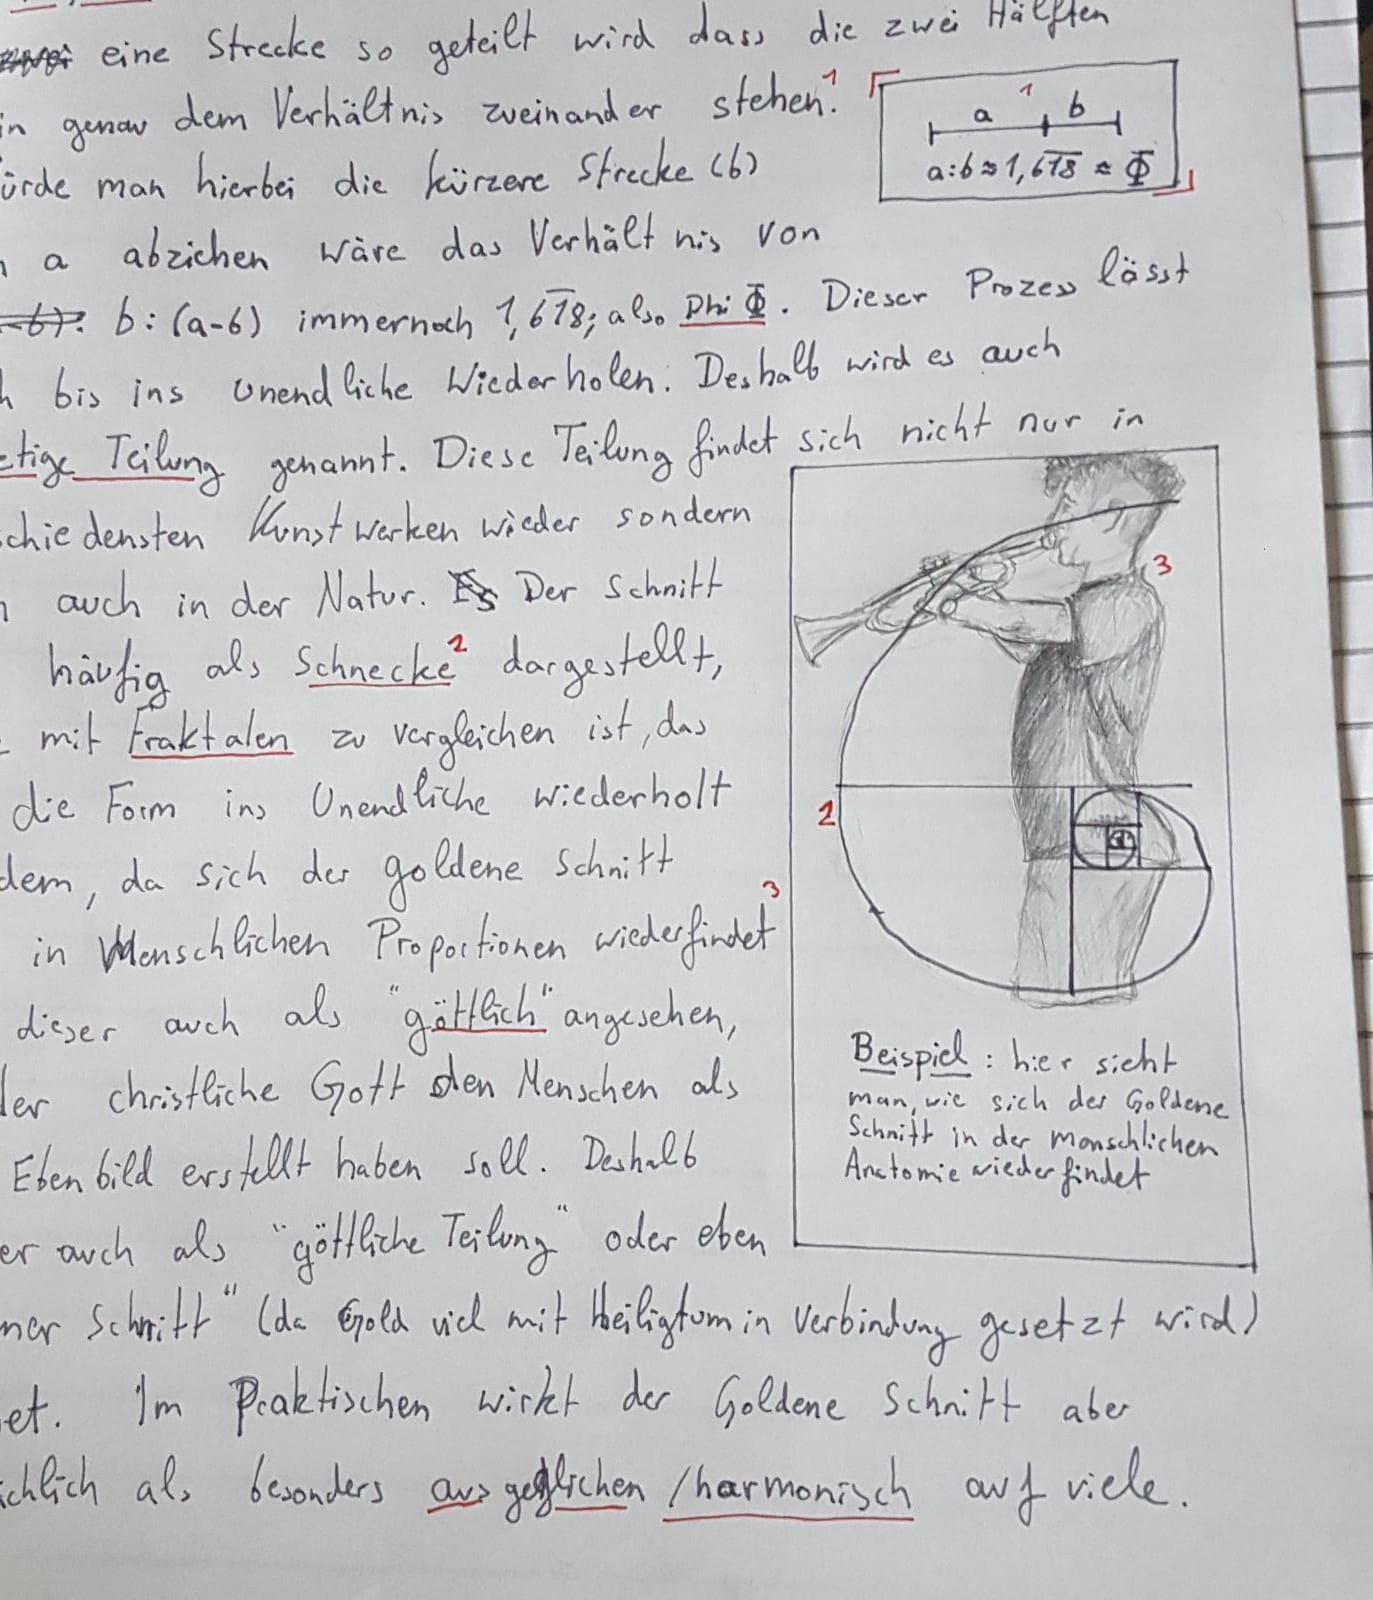 eine Strecke so geteilt wird dass die zwei Hälften
in genau dem Verhältnis zueinander stehen.¹
1
a b
a:b ≈ 1,61̅8̅ ≈ Φ
ürde man hierbei die kürzere Strecke (b)
a abziehen wäre das Verhältnis von
b : (a-b) immernoch 1,6̅1̅8; also Phi Φ. Dieser Prozess lässt
h bis ins Unendliche Wiederholen. Deshalb wird es auch
etige Teilung genannt. Diese Teilung findet sich nicht nur in
schiedensten Kunstwerken wieder sondern
auch in der Natur. Der Schnitt
häufig als Schnecke² dargestellt,
mit Fraktalen zu vergleichen ist, das
die Form ins Unendliche wiederholt
dem, da sich der goldene Schnitt
in Menschlichen Proportionen wiederfindet³
dieser auch als "göttlich" angesehen,
der christliche Gott den Menschen als
Ebenbild erstellt haben soll. Deshalb
er auch als "göttliche Teilung" oder eben
ner Schnitt" (da Gold viel mit Heiligtum in Verbindung gesetzt wird)
et. Im Praktischen wirkt der Goldene Schnitt aber
ichlich als besonders ausgeglichen /harmonisch auf viele.
3
2
Beispiel: hier sieht
man, wie sich der Goldene
Schnitt in der menschlichen
Anatomie wiederfindet